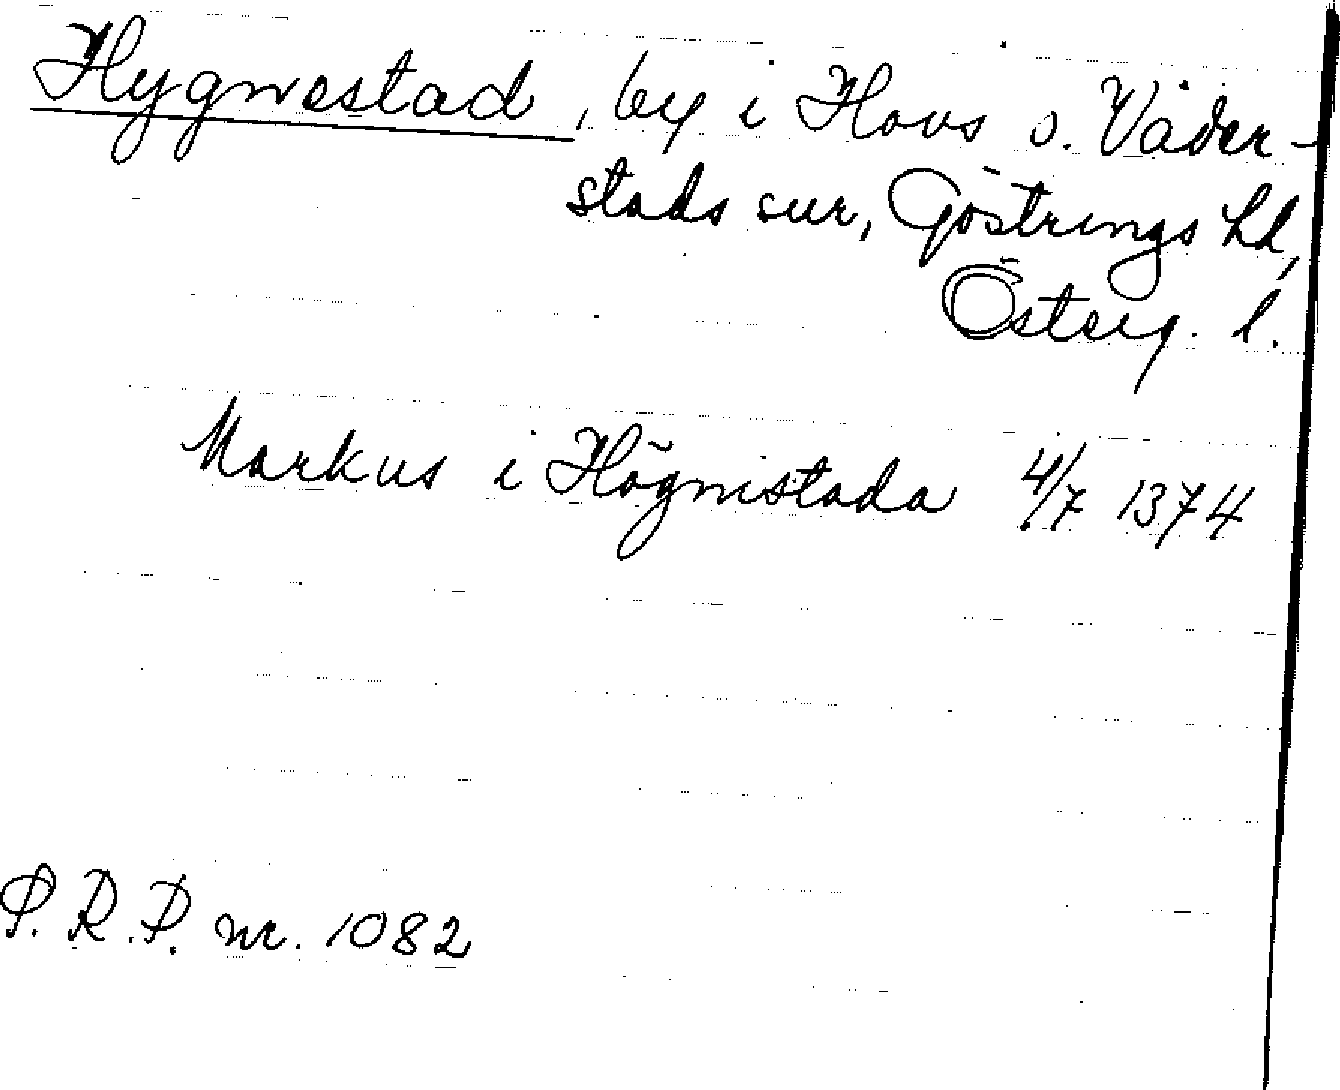 Hygnestad, by i Hovs o. Väder-
stads snr, Göstrings hd,
Österg. l.
Markus i Högnistada 4/7 1374
P.R.P. nr. 1082